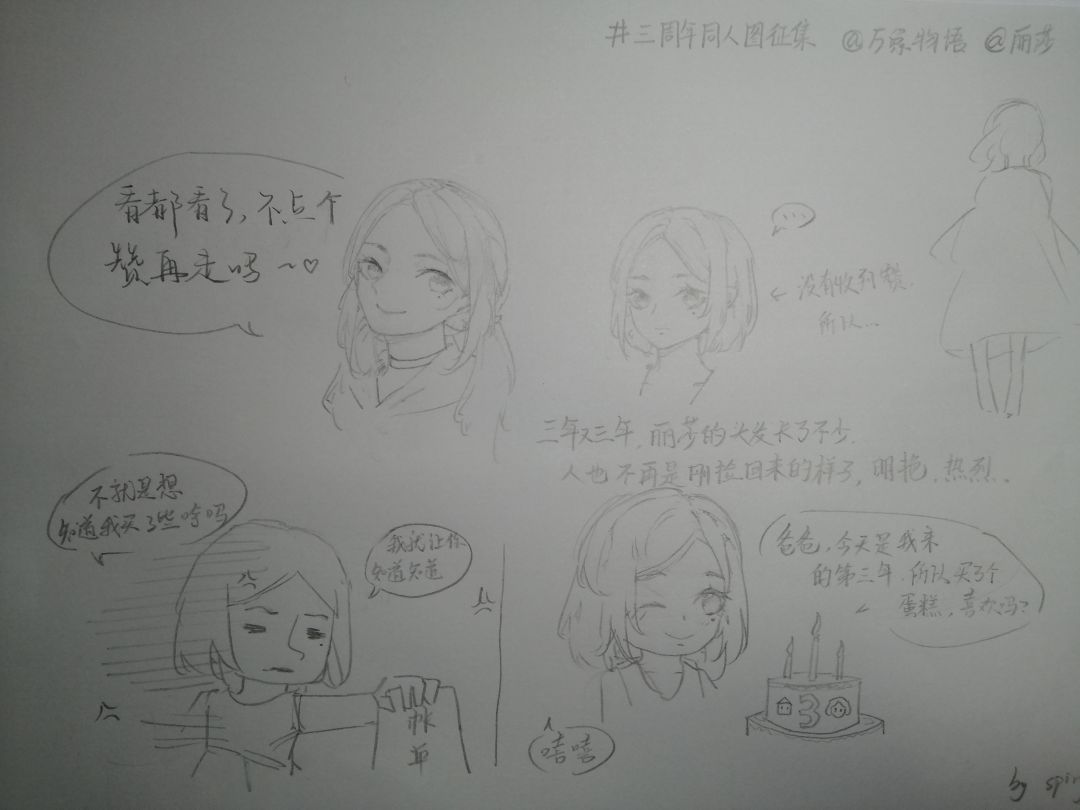 #三周年同人图征集 @万象物语 @丽莎
看都看了,不点个
赞再走吗~♡
...
←没有收到赞,
所以...
三年又三年,丽莎的头发长了不少.
人也不再是刚捡回来的样子,明艳.热烈..
不就是想
知道我买了些啥吗
我就让你
知道知道
帐单
爸爸,今天是我来
的第三年.所以买了个
蛋糕,喜欢吗?
3
嘻嘻
by